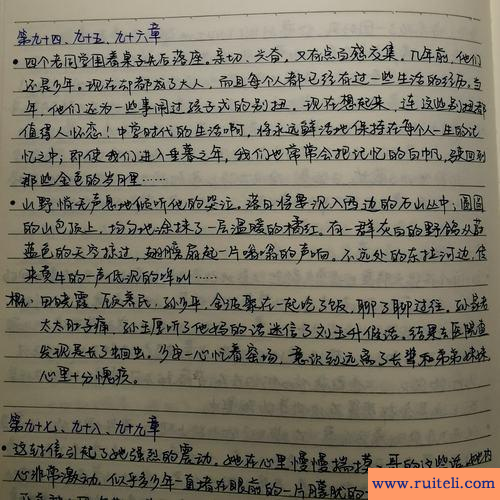 第九十四、九十五、九十六章
• 四个老同学围着桌子先后落座。亲切、兴奋，又有点百感交集。几年前，他们
还是少年。现在却都成了大人，而且每个人都已经有过一些生活的经历。当
年，他们还为一些事闹过孩子式的别扭。现在想起来，连这些别扭都
值得人怀恋！中学时代的生活啊，将永远鲜活地保持在每个人一生的记
忆之中；即使我们进入垂暮之年，我们也常常会把记忆的白帆，驶回到
那些金色的岁月里……
• 山野悄无声息地倾听他的哭泣。落日将要沉入西边的万山丛中；圆圆
的山包顶上，均匀地涂抹了一层温暖的橘红。有一群灰白的野鸽从蓝
蓝色的天空掠过，翅膀扇起一片嗡嗡的声响。不远处的东拉河边，传
来黄牛的一声低沉的哞叫……
概：田晓霞、顾养民、孙少平、金波聚在一起吃了饭，聊了聊过往。孙
太太肚子痛，孙玉厚听了他妈的话迷信了刘玉升假活。结果去医院查
发现是长了蛔虫。少安一心忙着窑场，意识到远离了长辈和弟弟妹妹
心里十分愧疚。
第九十七、九十八、九十九章
• 这封信引起了她强烈的震动。她在心里慢慢揣摸，哥的这些话，她内
心非常激动。似乎多少年一直堵在眼前的一片朦胧的
www.ruiteli.com